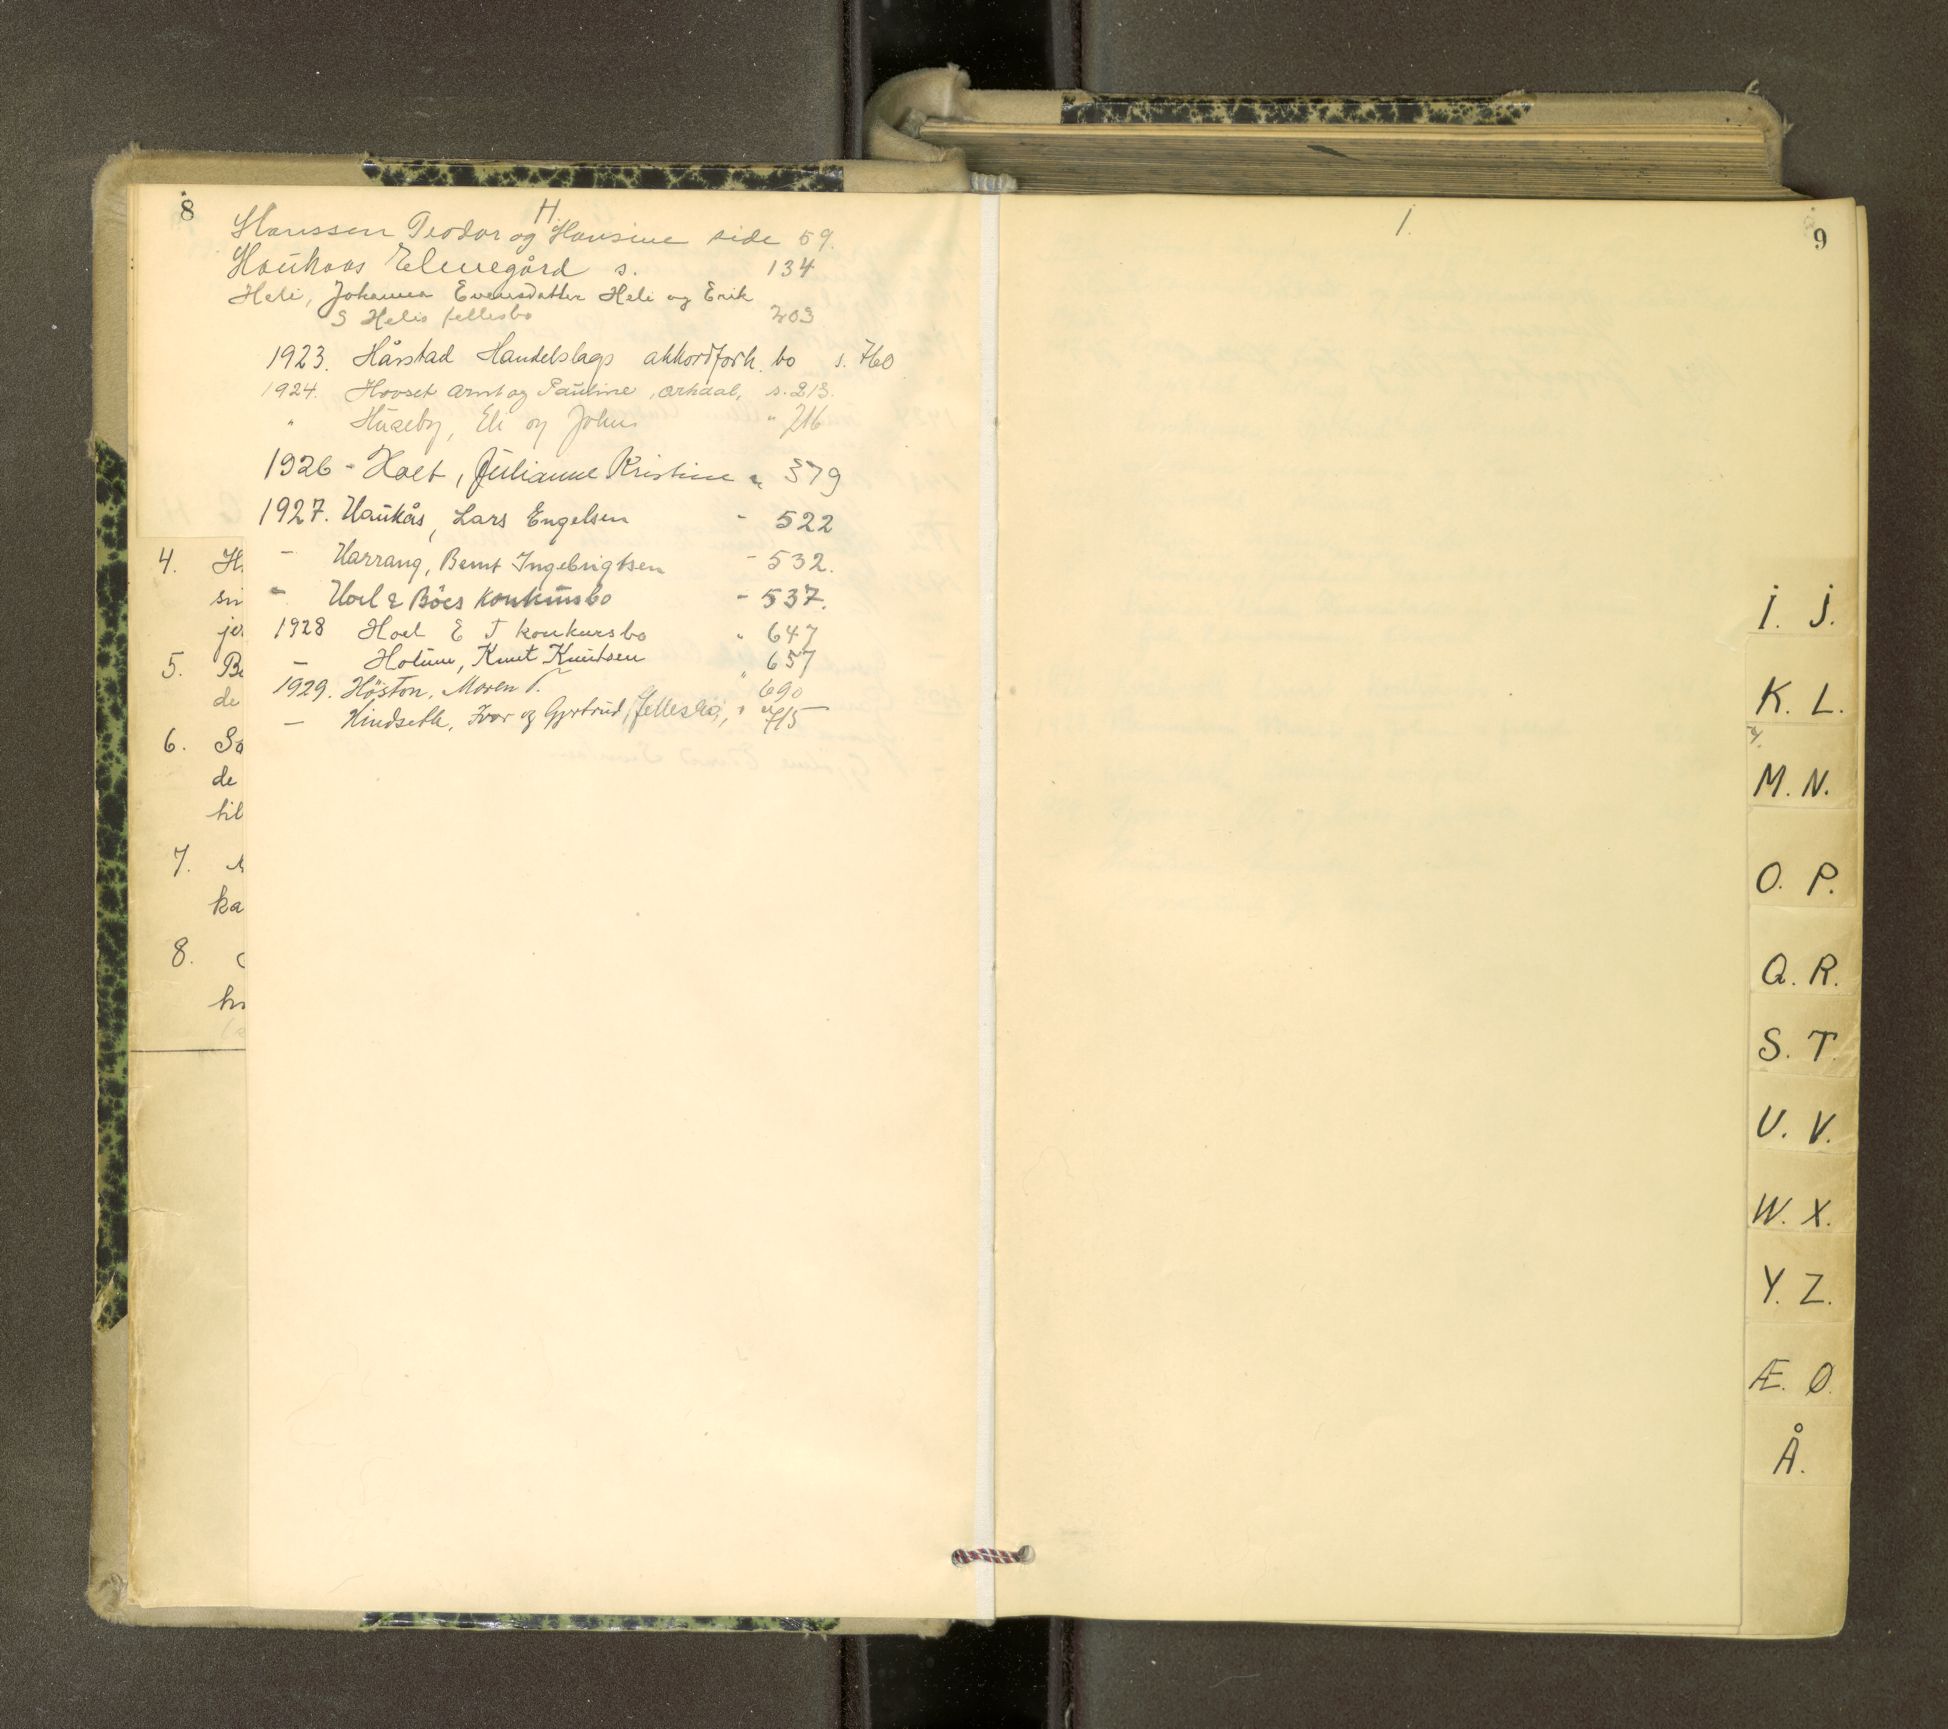 8
H
Hanssen Teodor og Hansine side 59.
Haukaas Elenegård s. 134
Heli, Johanna Evensdatter Heli og Erik
S Helis fellesbo 203
1923. Hårstad Handelslags akkordforh. bo s. 760
1924. Hovset Arnt og Pauline, Orkdal, s. 213.
" Huseby, Eli og Johns " 216
1926 - Holt, Julianne Kristine " 379
1927. Haukås, Lars Engelsen - 522
- Harrang, Bernt Ingebrigtsen - 532.
- Hoel & Böes konkursbo - 537.
1928 Hoel E T konkursbo " 647
- Holum, Knut Knutsen 657
1929. Høston, Maren T. " 690
- Hindseth, Ivar og Gjertrud, fellesbo, " 715
4. H
sn
jer
5. Be
de
6. Sa
de
til
7.
ka
8.
I.
9
I. J.
K. L.
M. N.
O. P.
Q. R.
S. T.
U. V.
W. X.
Y. Z.
Æ. Ø.
Å.